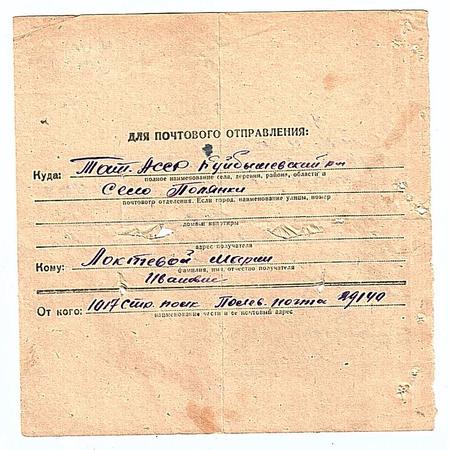 ДЛЯ ПОЧТОВОГО ОТПРАВЛЕНИЯ:
Куда: Тат. Асср Куйбышевский р-н
полное наименование села, деревни, района, области и
Село Полянки
почтового отделения. Если город, наименование улицы, номер
дома и квартиры
адрес получателя
Кому: Локтевой Марии
фамилия, имя, отчество получателя
Ивановне
От кого: 1017 Стр. полк Полев. почта 29140
наименование части и ее почтовый адрес